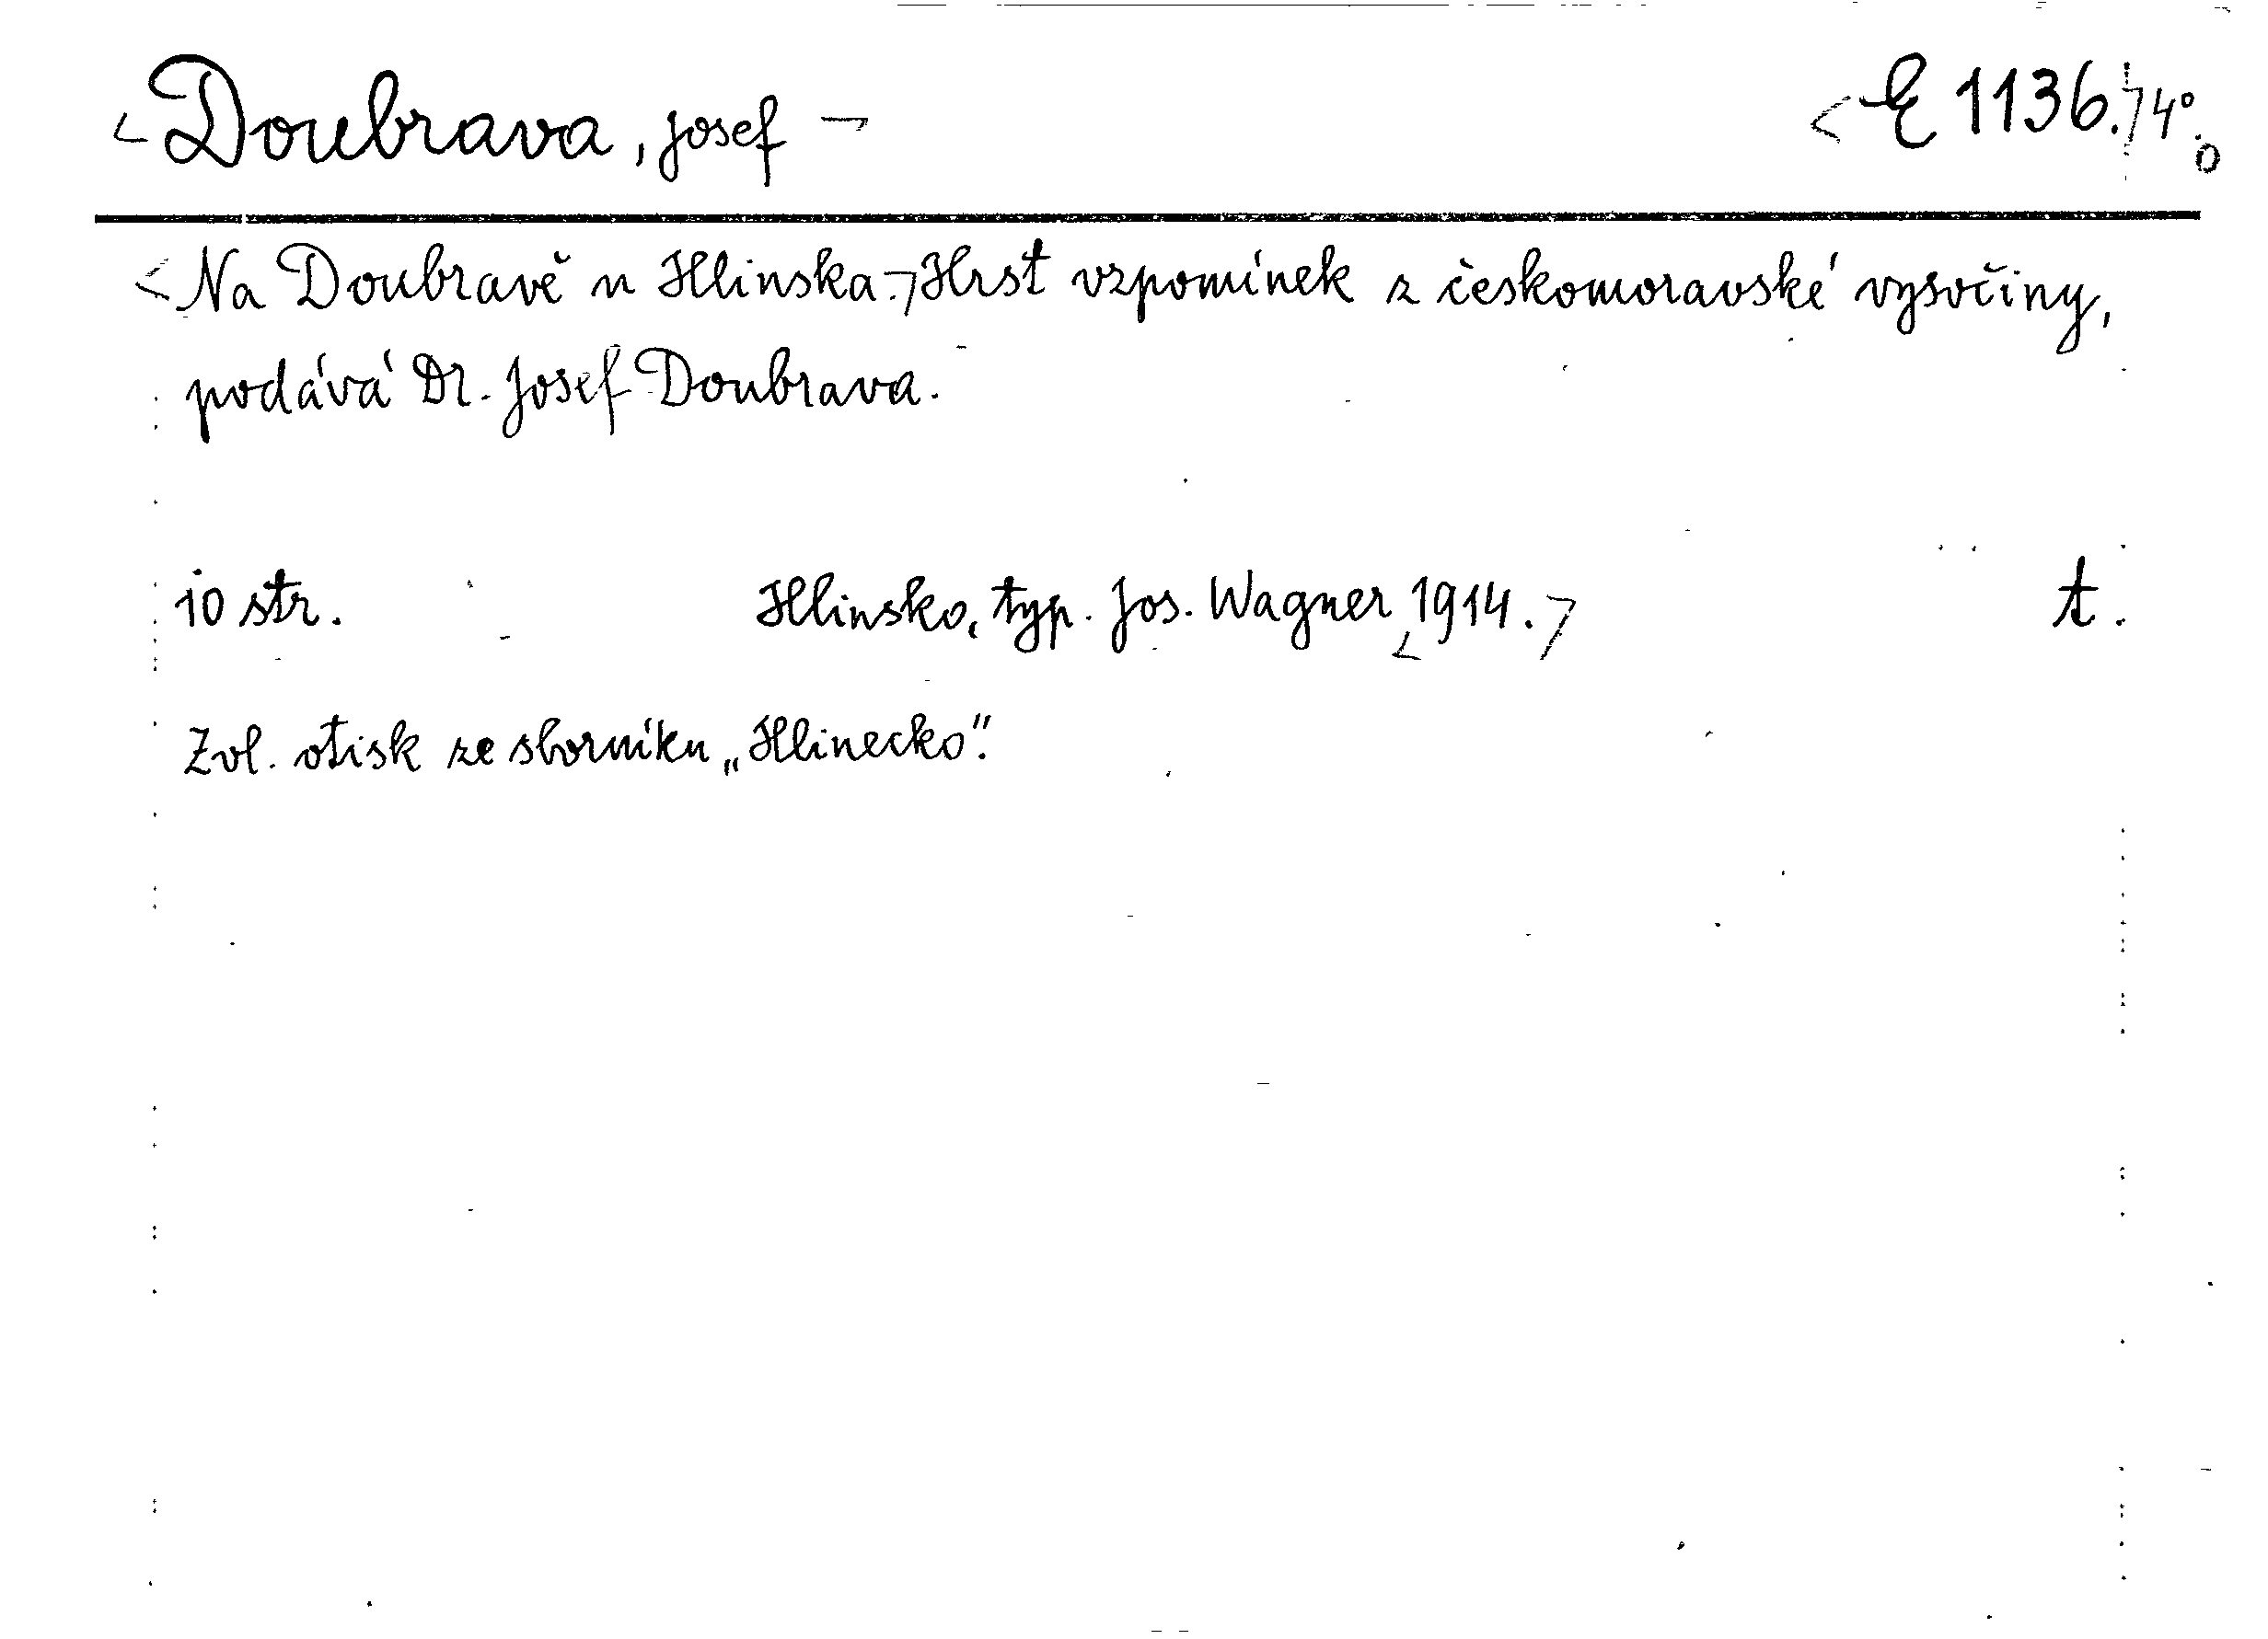 Doubrava, Josef E 1136. 4°.
Na Doubravě u Hlinska. Hrst vzpomínek z českomoravské vysočiny,
podává Dr. Josef Doubrava.
10 str. Hlinsko, typ. Jos. Wagner 1914. t.
Zvl. otisk ze sborníku „Hlinecko".